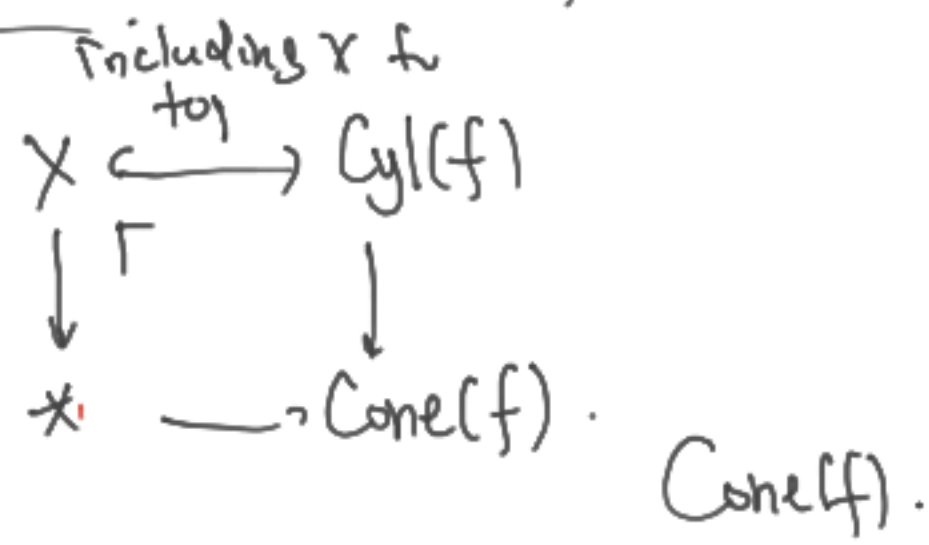 including X
top
X ↪ Cyl(f)
↓ ┌ ↓
* → Cone(f).
Cone(f).